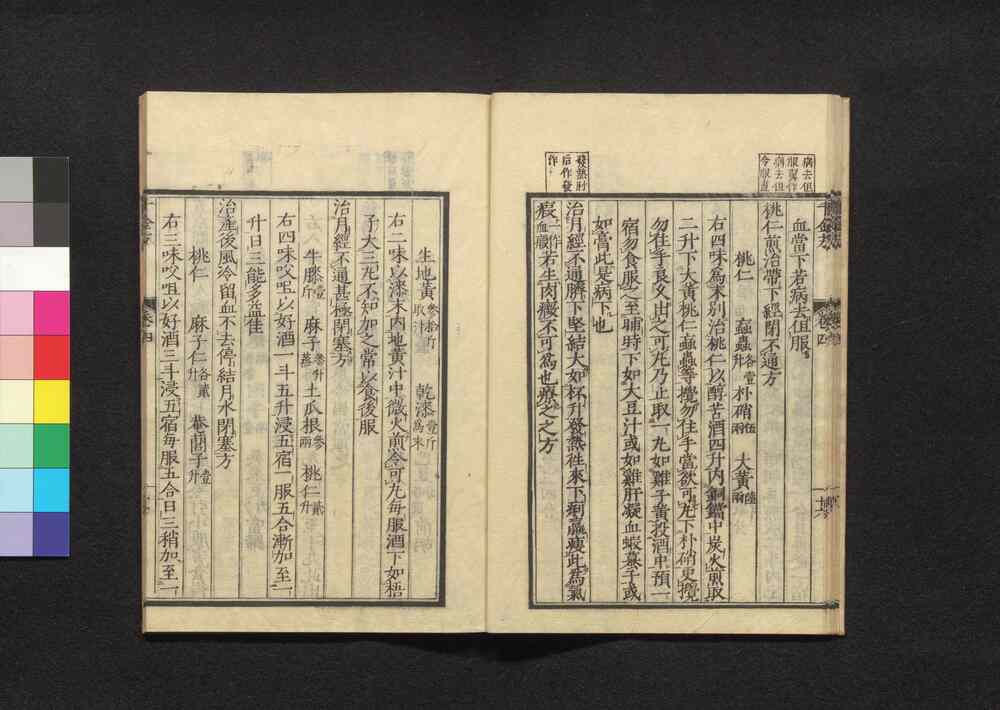 病去但
服質作
病去但
令服直
發熱肘
后作發
作
血當下若病去但服
桃仁煎治帶下經閉不通方
桃仁 䗪蟲各壹升 朴硝伍兩 大黃陸兩
右四味為末別治桃仁以醇苦酒四升內銅鐺中炭火煎取
二升下大黃桃仁䗪蟲等攪勿住手當欲可丸下朴硝更攪
勿住手良久出之可丸乃止取一丸如雞子黃投酒中預一
宿勿食服之至晡時下如大豆汁或如雞肝凝血蝦蟇子或
如膏此是病下也
治月經不通臍下堅結大如杯升發熱往來下痢羸瘦此為氣
瘕一作血瘕若生肉癥不可為也療之之方
生地黃參拾斤取汁 乾漆壹斤為末
右二味以漆末內地黃汁中微火煎令可丸每服酒下如梧
子大三丸不知加之常以食後服
治月經不通甚極閉塞方
牛膝壹斤 麻子參升蒸 土瓜根參兩 桃仁貳升
右四味㕮咀以好酒一斗五升浸五宿一服五合漸加至一
升日三能多益佳
治產後風冷留血不去停結月水閉塞方
桃仁 麻子仁各貳升 菴䕡子壹升
右三味㕮咀以好酒三斗浸五宿每服五合日三稍加至一